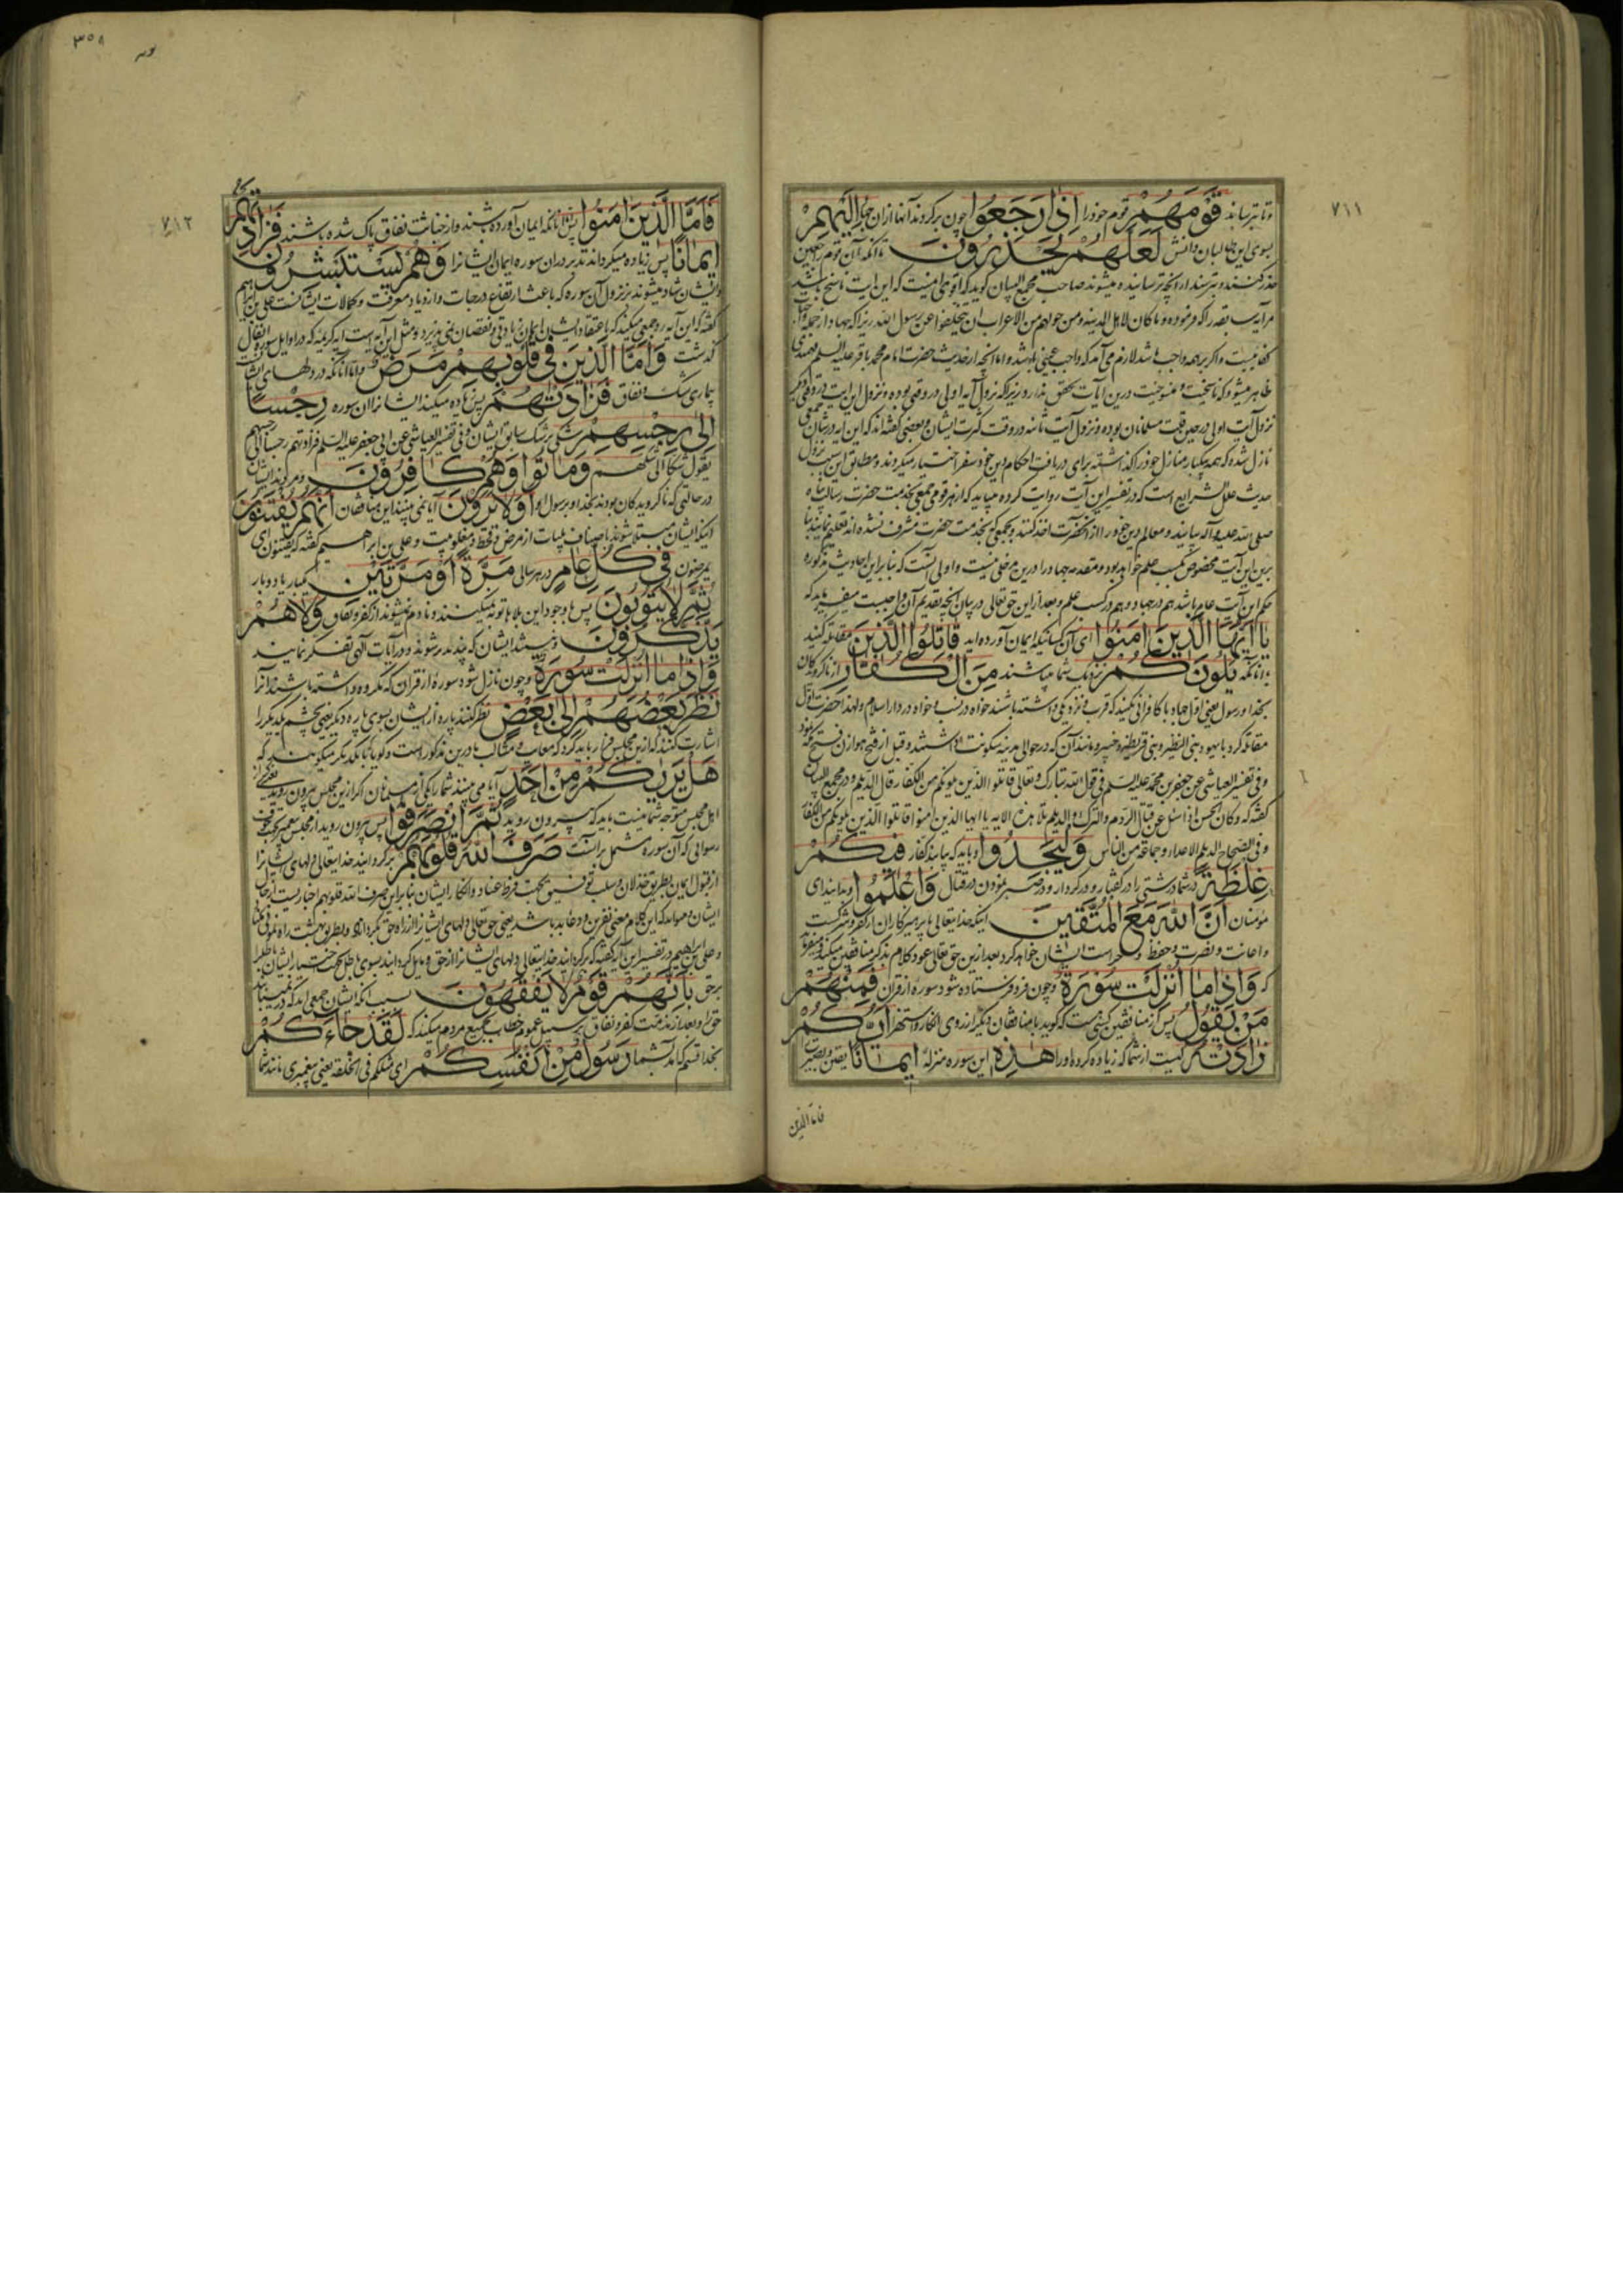 ۷۱۱
و تا بترسانند قَوْمَهُمْ قوم خود را اِذَا رَجَعُوا چون برگردند آنها از آن جهاد اِلَيْهِمْ
بسوی این طالبان دانش لَعَلَّهُمْ يَحْذَرُونَ تا آنکه آن قوم
حذر کنند و بترسند از آنچه ترسانیده میشوند صاحب مجمع البیان گوید که اقوی اینست که این آیت ناسخ باشد
مر آیت نفر را که فرموده وما کان لاهل المدینه ومن حولهم من الاعراب ان یتخلفوا عن رسول الله زیرا که جهاد از جمله
کفایتست و اگر بر همه واجب باشد لازم می آید که واجب عینی باشد و اما آنچه از حدیث حضرت امام محمد باقر علیه السلم
ظاهر میشود که ناسخیت و منسوخیت درین آیات تحقق ندارد زیرا که نزول آیه اولی در وقتی بوده و نزول این آیت در وقتی دیگر
نزول آیت اولی در حین قلت مسلمانان بوده و نزول آیت ثانیه در وقت کثرت ایشان و بعضی گفته اند که این آیه در شان جمعی
نازل شده که همه یکبار منازل خود را گذاشته برای دریافت احکام دین خود سفر اختیار میکردند و مطابق این سبب نزول
حدیث علل الشرایع است که در تفسیر این آیت روایت کرده میباید که از هر قومی جمعی بخدمت حضرت رسالت پناه
صلی الله علیه و آله بیایند و معالم دین خود را از آنحضرت اخذ کنند و بجمعی که بخدمت حضرت مشرف نشده اند تعلیم نمایند بنا
برین این آیت مخصوص بکسب علم خواهد بود و مقدمه جهاد را درین مدخلی نیست و اولی آنست که بنا بر این احادیث مذکوره
حکم این آیت عام باشد هم در جهاد و هم در کسب علم و بعد از این حق تعالی در بیان آنچه تقدیم آن واجبست میفرماید که
يَا اَيُّهَا الَّذِينَ اٰمَنُوا ای آن کسانیکه ایمان آورده اید قَاتِلُوا الَّذِينَ مقاتله کنید
با آنانکه يَلُونَكُمْ نزدیک شما میباشند مِنَ الْكُفَّارِ از ناگرویدگان
بخدا و رسول یعنی اول جهاد با کافرانی نکنید که قرب و نزدیکی داشته باشند خواه در نسب و خواه در دار اسلام و لهذا حضرت اول
مقاتله کرد با یهود بنی النظیر و بنی قریظه و خیبر و مانند آن که در حوالی مدینه سکونت داشتند و قبل از فتح هوازن فتح مکه نمود
وفی تفسیر العیاشی عن جعفر بن محمد علیه السلم فی قول الله تبارک و تعالی قاتلوا الذین یلونکم من الکفار قال الدیلم و در مجمع البیان
گفته که وکان الحسن اذا سئل عن قتال الروم والترک والدیلم تلا هذه الایه یا ایها الذین امنوا قاتلوا الذین یلونکم من الکفار
وفی الصحاح الدیلم الاعداء و جماعة من الناس وَلْيَجِدُوا و باید که بیابند کفار فِيكُمْ
غِلْظَةً در شما درشتی را در گفتار و در کردار و در صبر نمودن در قتال وَاعْلَمُوا و بدانید ای
مؤمنان اَنَّ اللّٰهَ مَعَ الْمُتَّقِينَ اینکه خدایتعالی با پرهیزکاران از کفر و شرکست
و اعانت و نصرت و حفظ و حراست ایشان خواهد کرد بعد از ین حق تعالی عود کلام بذکر منافقین میکند و میفرماید
که وَاِذَا مَا اُنْزِلَتْ سُورَةٌ و چون فرو فرستاده شود سوره از قرآن فَمِنْهُمْ
مَنْ يَقُولُ پس از منافقین کسی هست که گوید با منافقان دیگر از روی انکار و استهزا اَيُّكُمْ
زَادَتْهُ کیست از شما که زیاده کرده او را هٰذِهِ این سوره منزله اِيمَانًا یقین و بصیرت
فاما الذین
۳۵۸
۷۱۲
فَاَمَّا الَّذِينَ اٰمَنُوا پس آنانکه ایمان آورده باشند و از خباثت نفاق پاک شده باشند فَزَادَتْهُمْ
اِيمَانًا پس زیاده میگرداند تدبر در آن سوره ایمان ایشانرا وَهُمْ يَسْتَبْشِرُونَ
و ایشان شاد میشوند بنزول آن سوره که باعث ارتفاع درجات و ازدیاد معرفت و کمالات ایشانست علی بن ابراهیم
گفته که این آیه رد جمعی میکند که باعتقاد ایشان ایمان زیادتی و نقصان نمی پذیرد و مثل این آیه است ایه کریمه که در اوایل سوره انفال
گذشت وَاَمَّا الَّذِينَ فِي قُلُوبِهِمْ مَرَضٌ و اما آنانکه در دلهای ایشان
بیماری شک و نفاق فَزَادَتْهُمْ پس زیاده میکند ایشانرا آن سوره رِجْسًا
اِلٰى رِجْسِهِمْ شکی بر شک سابق ایشان وفی تفسیر العیاشی عن ابی جعفر علیه السلم فزادتهم رجسا الی رجسهم
یقول شکا الی شکهم وَمَاتُوا وَهُمْ كَافِرُونَ و مردند ایشان
در حالتی که ناگرویدگان بودند بخدا و برسول او اَوَلَا يَرَوْنَ آیا نمی بینند این منافقان اَنَّهُمْ يُفْتَنُونَ
آنکه ایشان مبتلا میشوند باصناف بلیات از مرض و قحط و مغلوبیت و علی بن ابراهیم گفته که یفتنون ای
یمرضون فِي كُلِّ عَامٍ در هر سالی مَرَّةً اَوْ مَرَّتَيْنِ یکبار یا دو بار
ثُمَّ لَا يَتُوبُونَ پس با وجود این بلاها توبه نمیکنند و نادم نمیشوند از کفر و نفاق وَلَا هُمْ
يَذَّكَّرُونَ و نیستند ایشان که پند پذیر شوند و در آیات آلهی تفکر نمایند
وَاِذَا مَا اُنْزِلَتْ سُورَةٌ و چون نازل شود سوره از قرآن که مکروه داشته باشند آنرا
نَظَرَ بَعْضُهُمْ اِلٰى بَعْضٍ نظر کنند پاره از ایشان بسوی پاره دیگر یعنی بچشم یکدیگر را
اشارت کنند که ازین مجلس فرار باید کرد که معایب و مثالب ما درین مذکور است و گویا با یکدیگر میگویند که
هَلْ يَرٰيكُمْ مِنْ اَحَدٍ آیا می بینند شما را یکی از مسلمانان اگر ازین مجلس بیرون روید یعنی اگر
اهل مجلس متوجه شما نیست باید که بیرون روید ثُمَّ انْصَرَفُوا پس بیرون روید از مجلس پیغمبر بجهت خوف
رسوایی که آن سوره مشتمل بر آنست صَرَفَ اللّٰهُ قُلُوبَهُمْ برگردانید خدایتعالی دلهای ایشانرا
از قبول ایمان بطریق خذلان و سلب توفیق بجهت فرط عناد و انکار ایشان بنا بر این صرف الله قلوبهم اخباریست از حال
ایشان و میتواند که این کلام معنی نفرین و دعای بد باشد یعنی حق تعالی دلهای ایشانرا از راه حق بگرداند و بطریق بهشت راه ننماید
و علی بن ابراهیم در تفسیر این آیه گفته که برگردانید خدایتعالی دلهای ایشانرا از حق و مایل گردانید بسوی باطل بجهت اختیار ایشان باطل را
بر حق بِاَنَّهُمْ قَوْمٌ لَا يَفْقَهُونَ بسبب آنکه ایشان جمعی اند که در نمییابند
حق را و بعد از مذمت کفر و نفاق بر سبیل عموم خطاب بجمیع مردم میکند که لَقَدْ جَاءَكُمْ
بخدا قسم که آمد بشما رَسُولٌ مِنْ اَنْفُسِكُمْ ای مثلکم فی الخلقة یعنی پیغمبری مانند شما